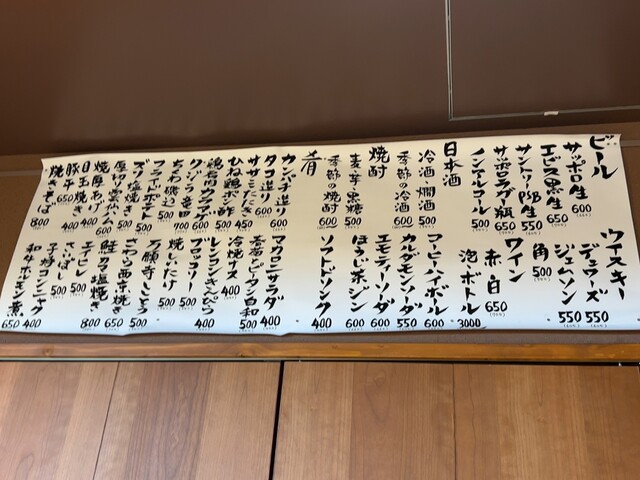 ビール
サッポロ生 600
エビス黒生 650
サントリーPSB生 550
サッポロラガー瓶 650
ノンアルコール 500
日本酒
冷酒・燗酒 500
季節の冷酒 600〜
焼酎
麦・芋・黒糖 500
季節の焼酎 600〜
肴
カンパチ造り 600
タコ造り 600
ササミたたき 450
ひね鶏ポン酢 500
クジラ竜田 700
ちくわ磯辺 500
フライドポテト 500
ズリ塩焼き 500
厚切りハム 600
焼厚あげ 400
目玉焼き 400
豚平 650
焼きそば 800
ウイスキー
デュワーズ 550
ジェムソン 550
角 500
ワイン
赤・白 650
泡・ボトル 3000
コーヒーハイボール 600
カルダモンソーダ 550
エモティーソーダ 600
ほうじ茶ジン 600
ソフトドリンク 400
マカロニサラダ 400
春菊とピータン白和 500
冷焼ナス 400
レンコンきんぴら 400
ブロッコリー 500
焼しいたけ 500
万願寺とうとう 500
さわら西京焼き 650
鮭カマ塩焼き 650
エイヒレ 500
子持コンニャク 400
和牛ホルモン煮 650